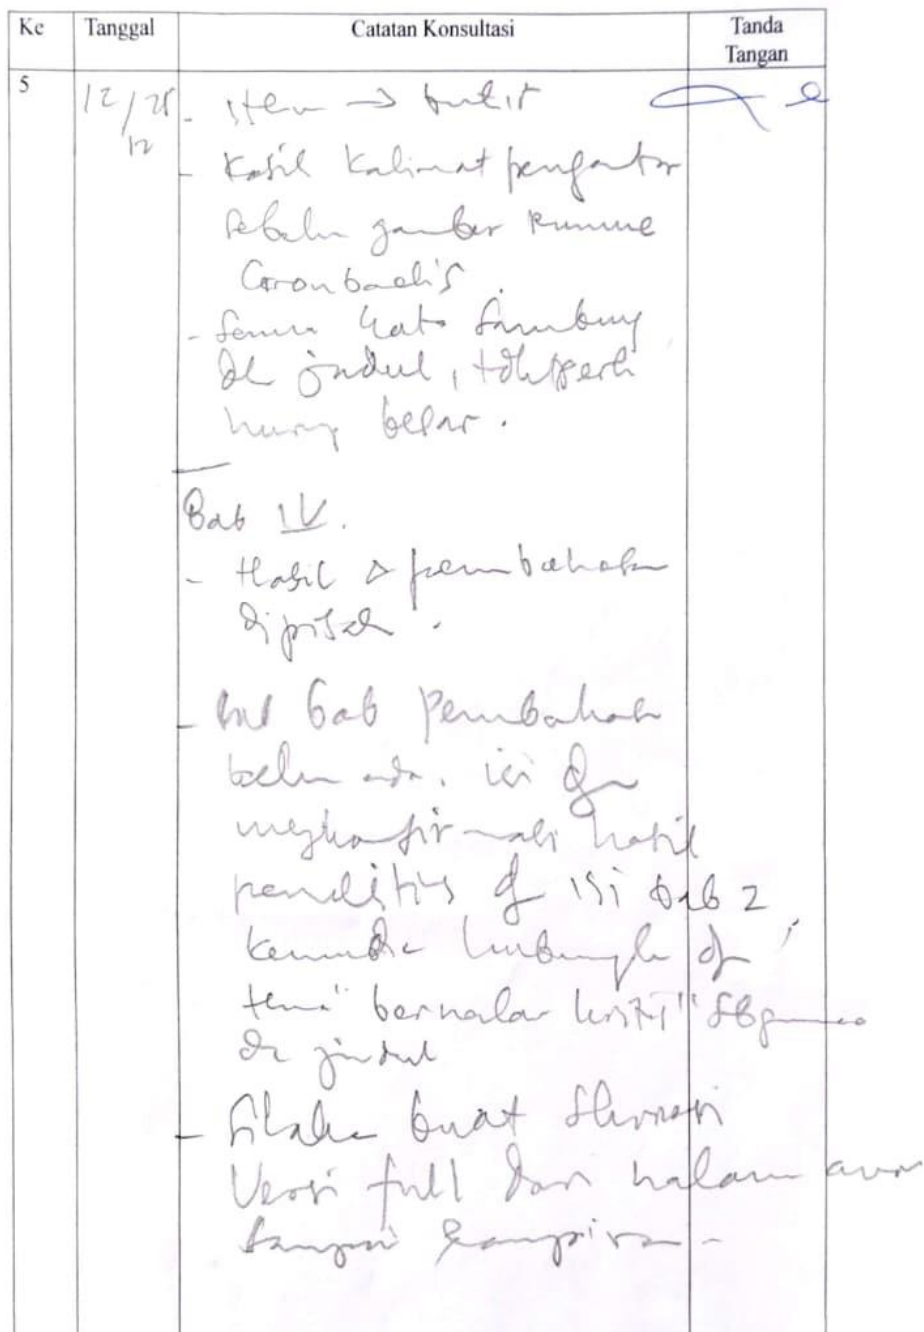 Ke Tanggal Catatan Konsultasi Tanda Tangan
5
12/12
- item → butir
- Kasih Kalimat pengantar
sebelum gambar rumus
Cronbach's
- Semua kata sambung
di judul, tdk perlu
huruf besar.
Bab IV.
- Hasil & pembahasan
dipisah.
- sub bab Pembahasan
belum ada. isi dgn
mengkonfirmasi hasil
penelitian dg isi bab 2
kemudian hubungkan dg
tema "bernalar kritis" sbgmana
di judul
- Silakan buat skripsi
Versi full dari halaman awal
sampai Lampiran -